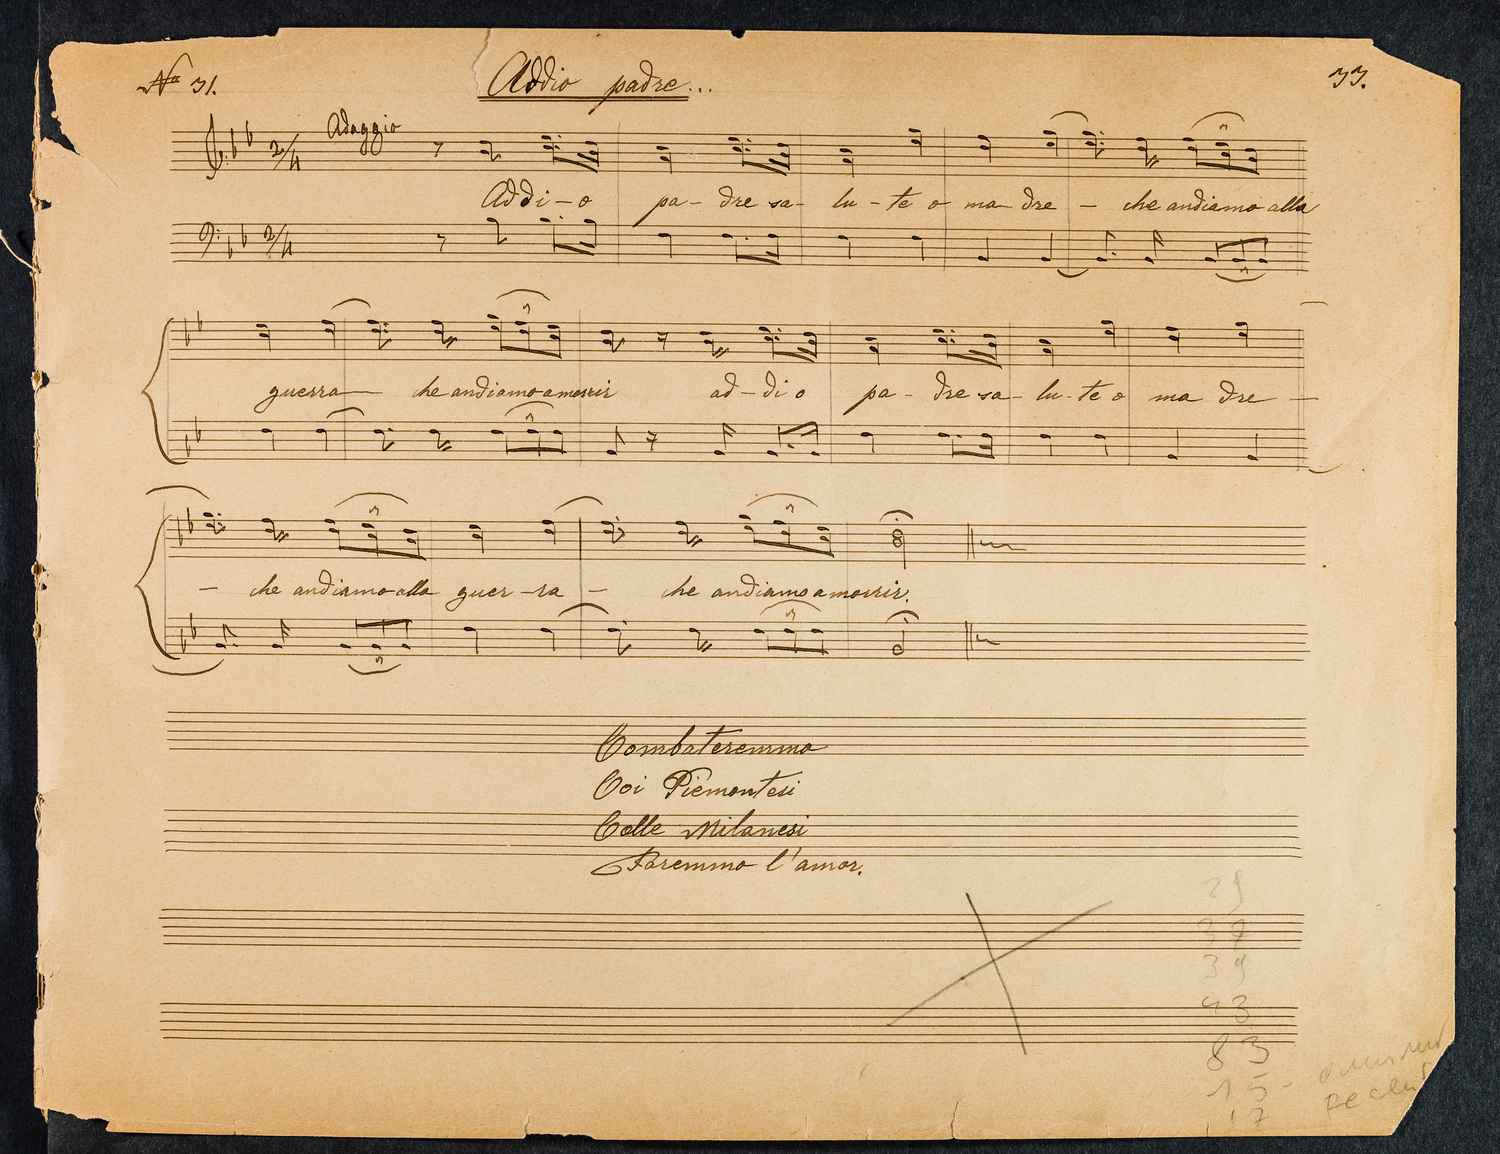 No 31. Addio padre... 33.
Adaggio
2/4
Addi-o pa-dre sa-lu-te o ma dre - che andiamo alla
2/4
guerra - che andiamo a morir ad-di o pa-dre sa-lu-te o ma dre -
- che andiamo alla guer-ra - che andiamo a morir.
Combateremmo
Coi Piemontesi
Colle Milanesi
Faremmo l'amor.
29
37
39
43
83
15-
17